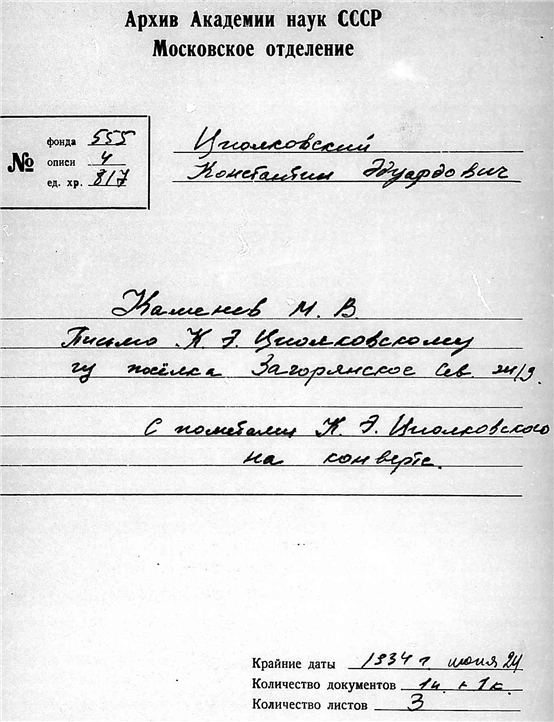 Архив Академии наук СССР
Московское отделение
№
фонда 555
описи 4
ед. хр. 817
Циолковский
Константин Эдуардович
Каменев М. В
Письмо К. Э. Циолковскому
посёлка Загорянское Сев. ж/д.
С пометами К. Э. Циолковского
на конверте.
Крайние даты 1934 г. 24
Количество документов 1п. + 1к.
Количество листов 3